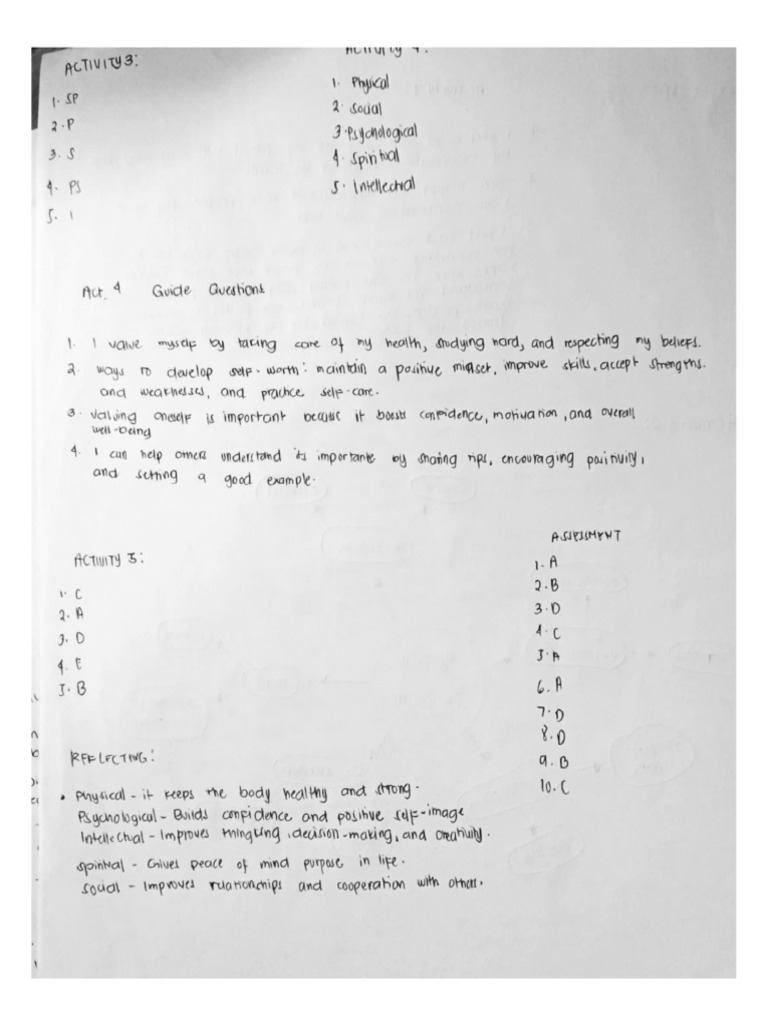 ACTIVITY 3:
1. SP
2. P
3. S
4. PS
5. I
Activity 4:
1. Physical
2. Social
3. Psychological
4. Spiritual
5. Intellectual
Act. 4 Guide Questions
1. I value myself by taking care of my health, studying hard, and respecting my beliefs.
2. ways to develop self-worth: maintain a positive minset, improve skills, accept strengths.
and weaknesses, and practice self-care.
3. Valuing oneself is important because it boosts confidence, motivation, and overall
well-being
4. I can help others understand its importante by sharing tips, encouraging positivity,
and setting a good example.
ACTIVITY 5:
1. C
2. A
3. D
4. E
5. B
ASSESSMENT
1. A
2. B
3. D
4. C
5. A
6. A
7. D
8. D
9. B
10. C
REFLECTING:
• Physical - it keeps the body healthy and strong.
Psychological - Builds confidence and positive self-image
Intellectual - Improves thingking, decision-making, and creativity.
spiritual - Gives peace of mind purpose in life.
social - Improves relationships and cooperation with others.